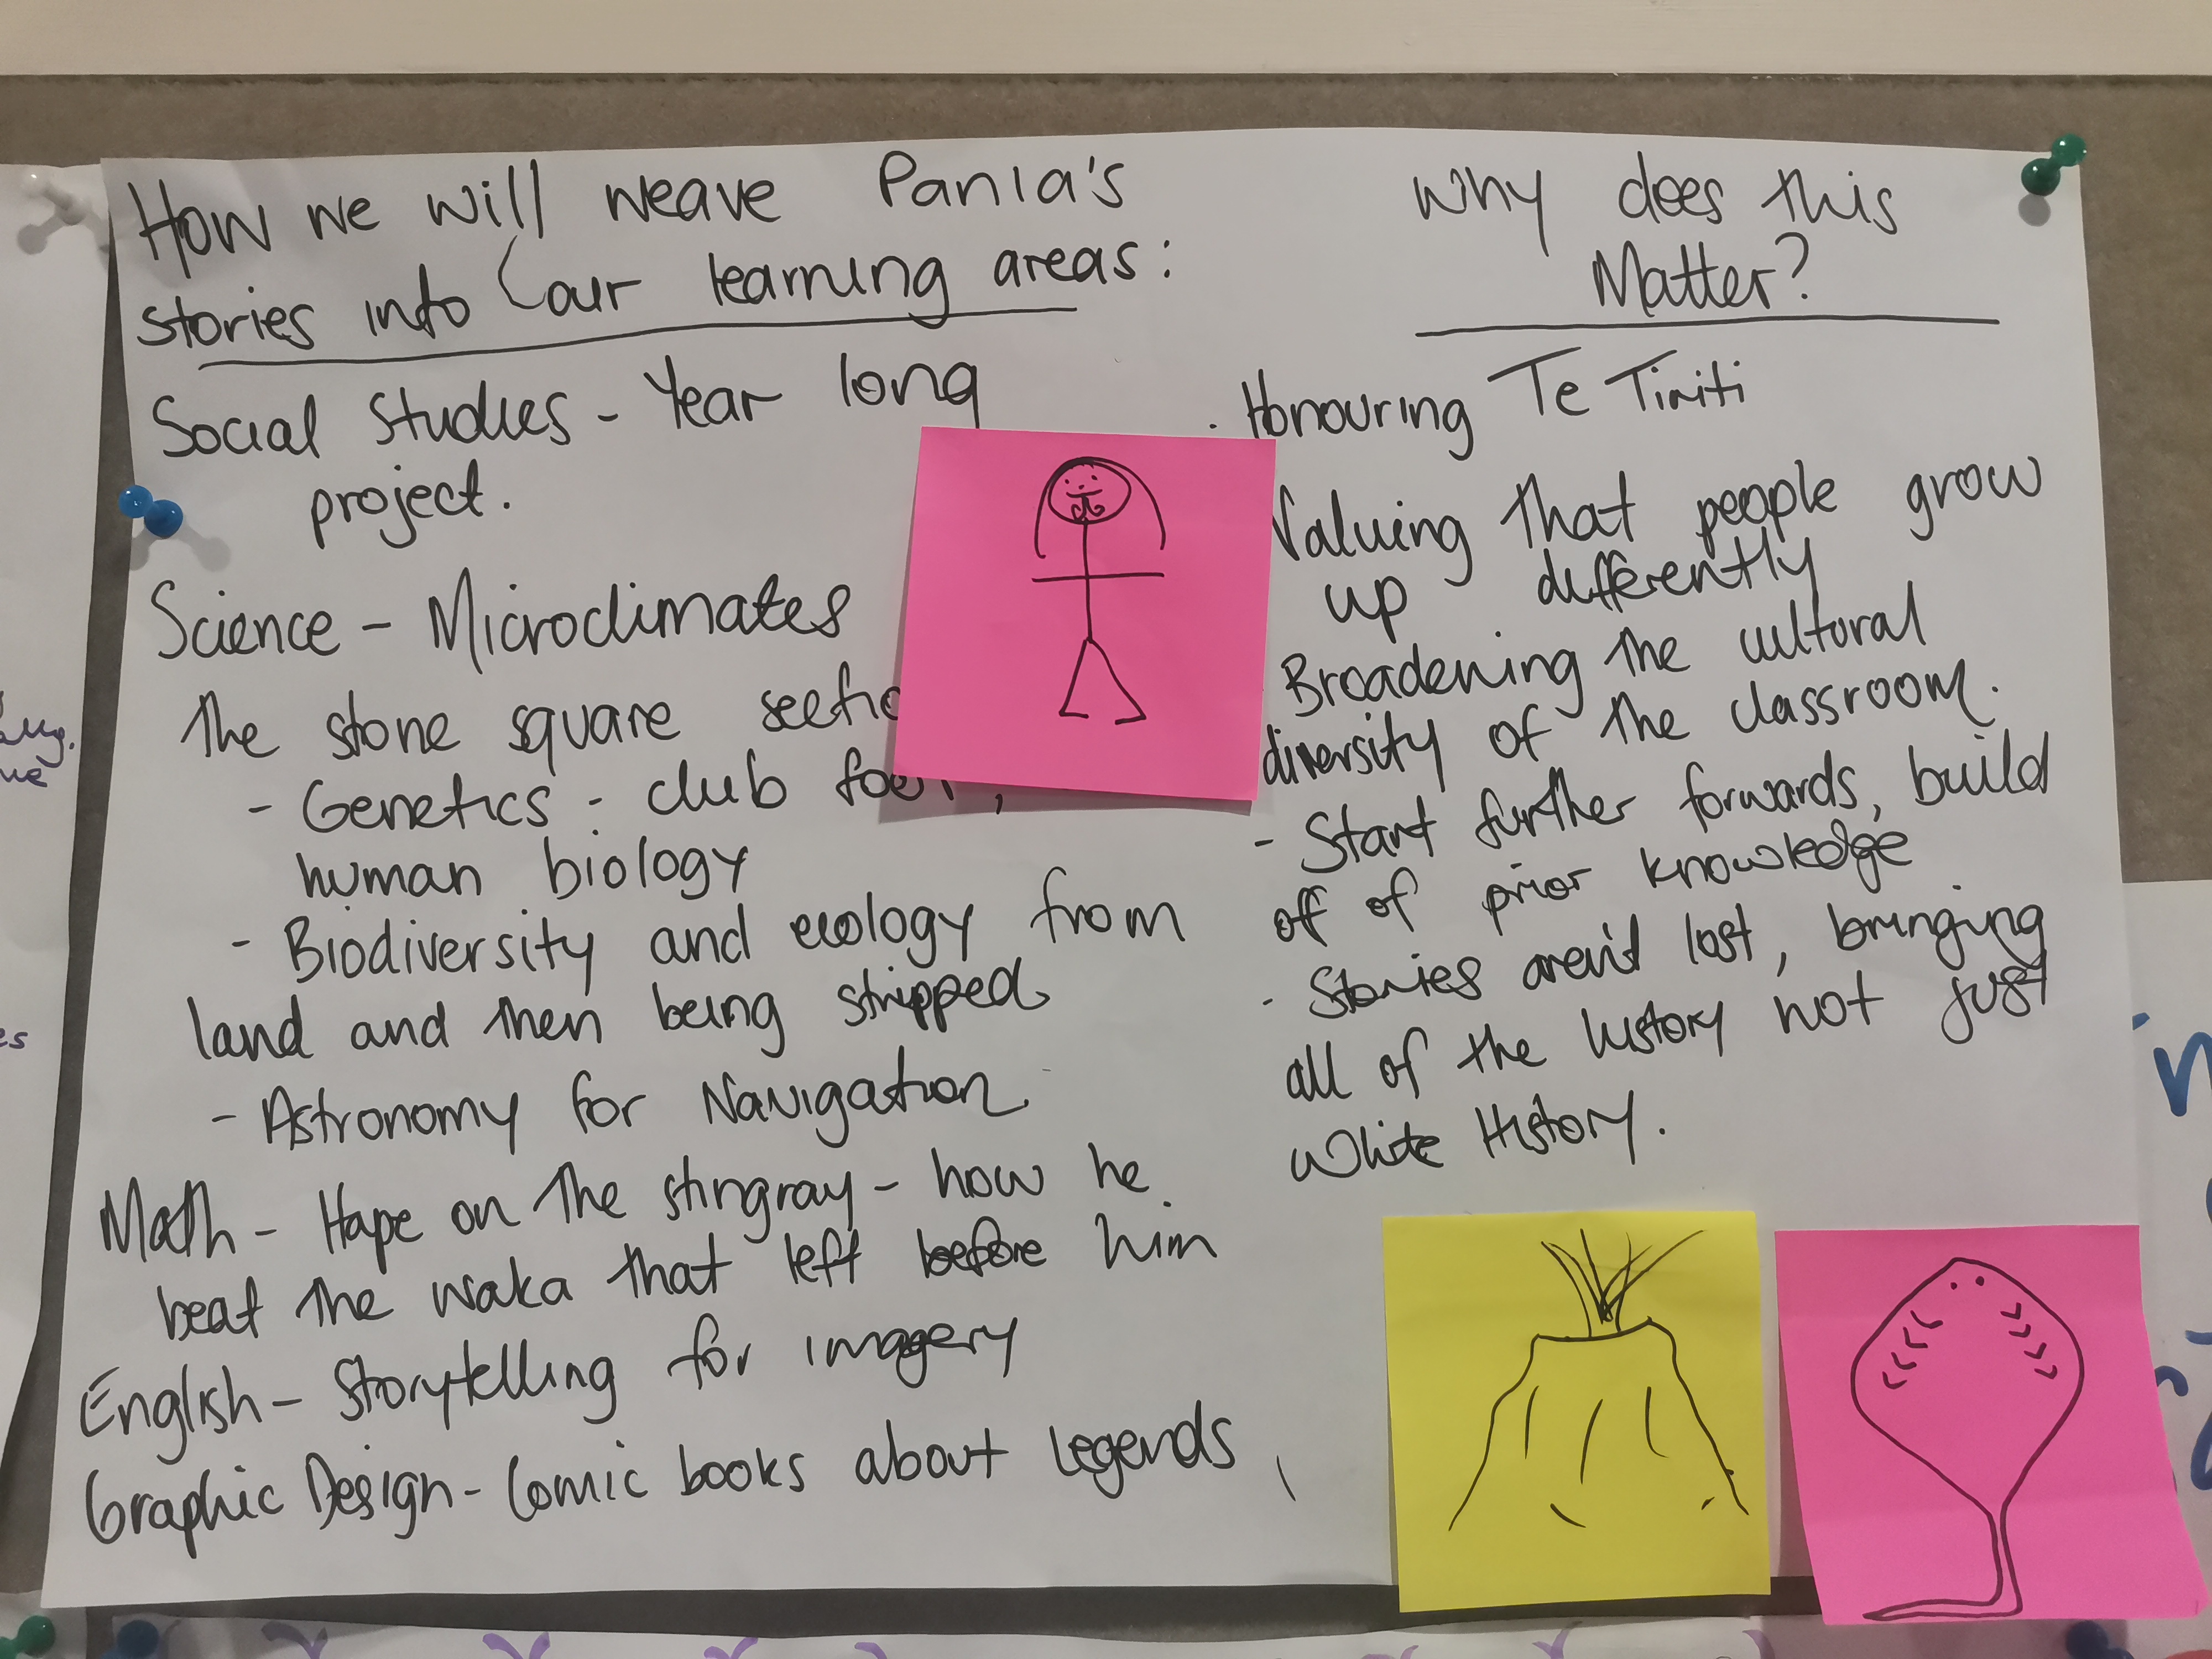 How we will weave Pania's
stories into our learning areas:
Social Studies - Year long
project.
Science - Microclimates
The stone square
- Genetics - club foot,
human biology
- Biodiversity and ecology from
land and then being stripped
- Astronomy for Navigation
Math - Hape on the stingray - how he
beat the waka that left before him
English - Storytelling for imagery
Graphic Design - Comic books about legends
Why does this
Matter?
Honouring Te Tiriti
Valuing that people grow
up differently
Broadening the cultural
diversity of the classroom.
- Start further forwards, build
off of prior knowledge
- Stories aren't lost, bringing
all of the history not just
White History.